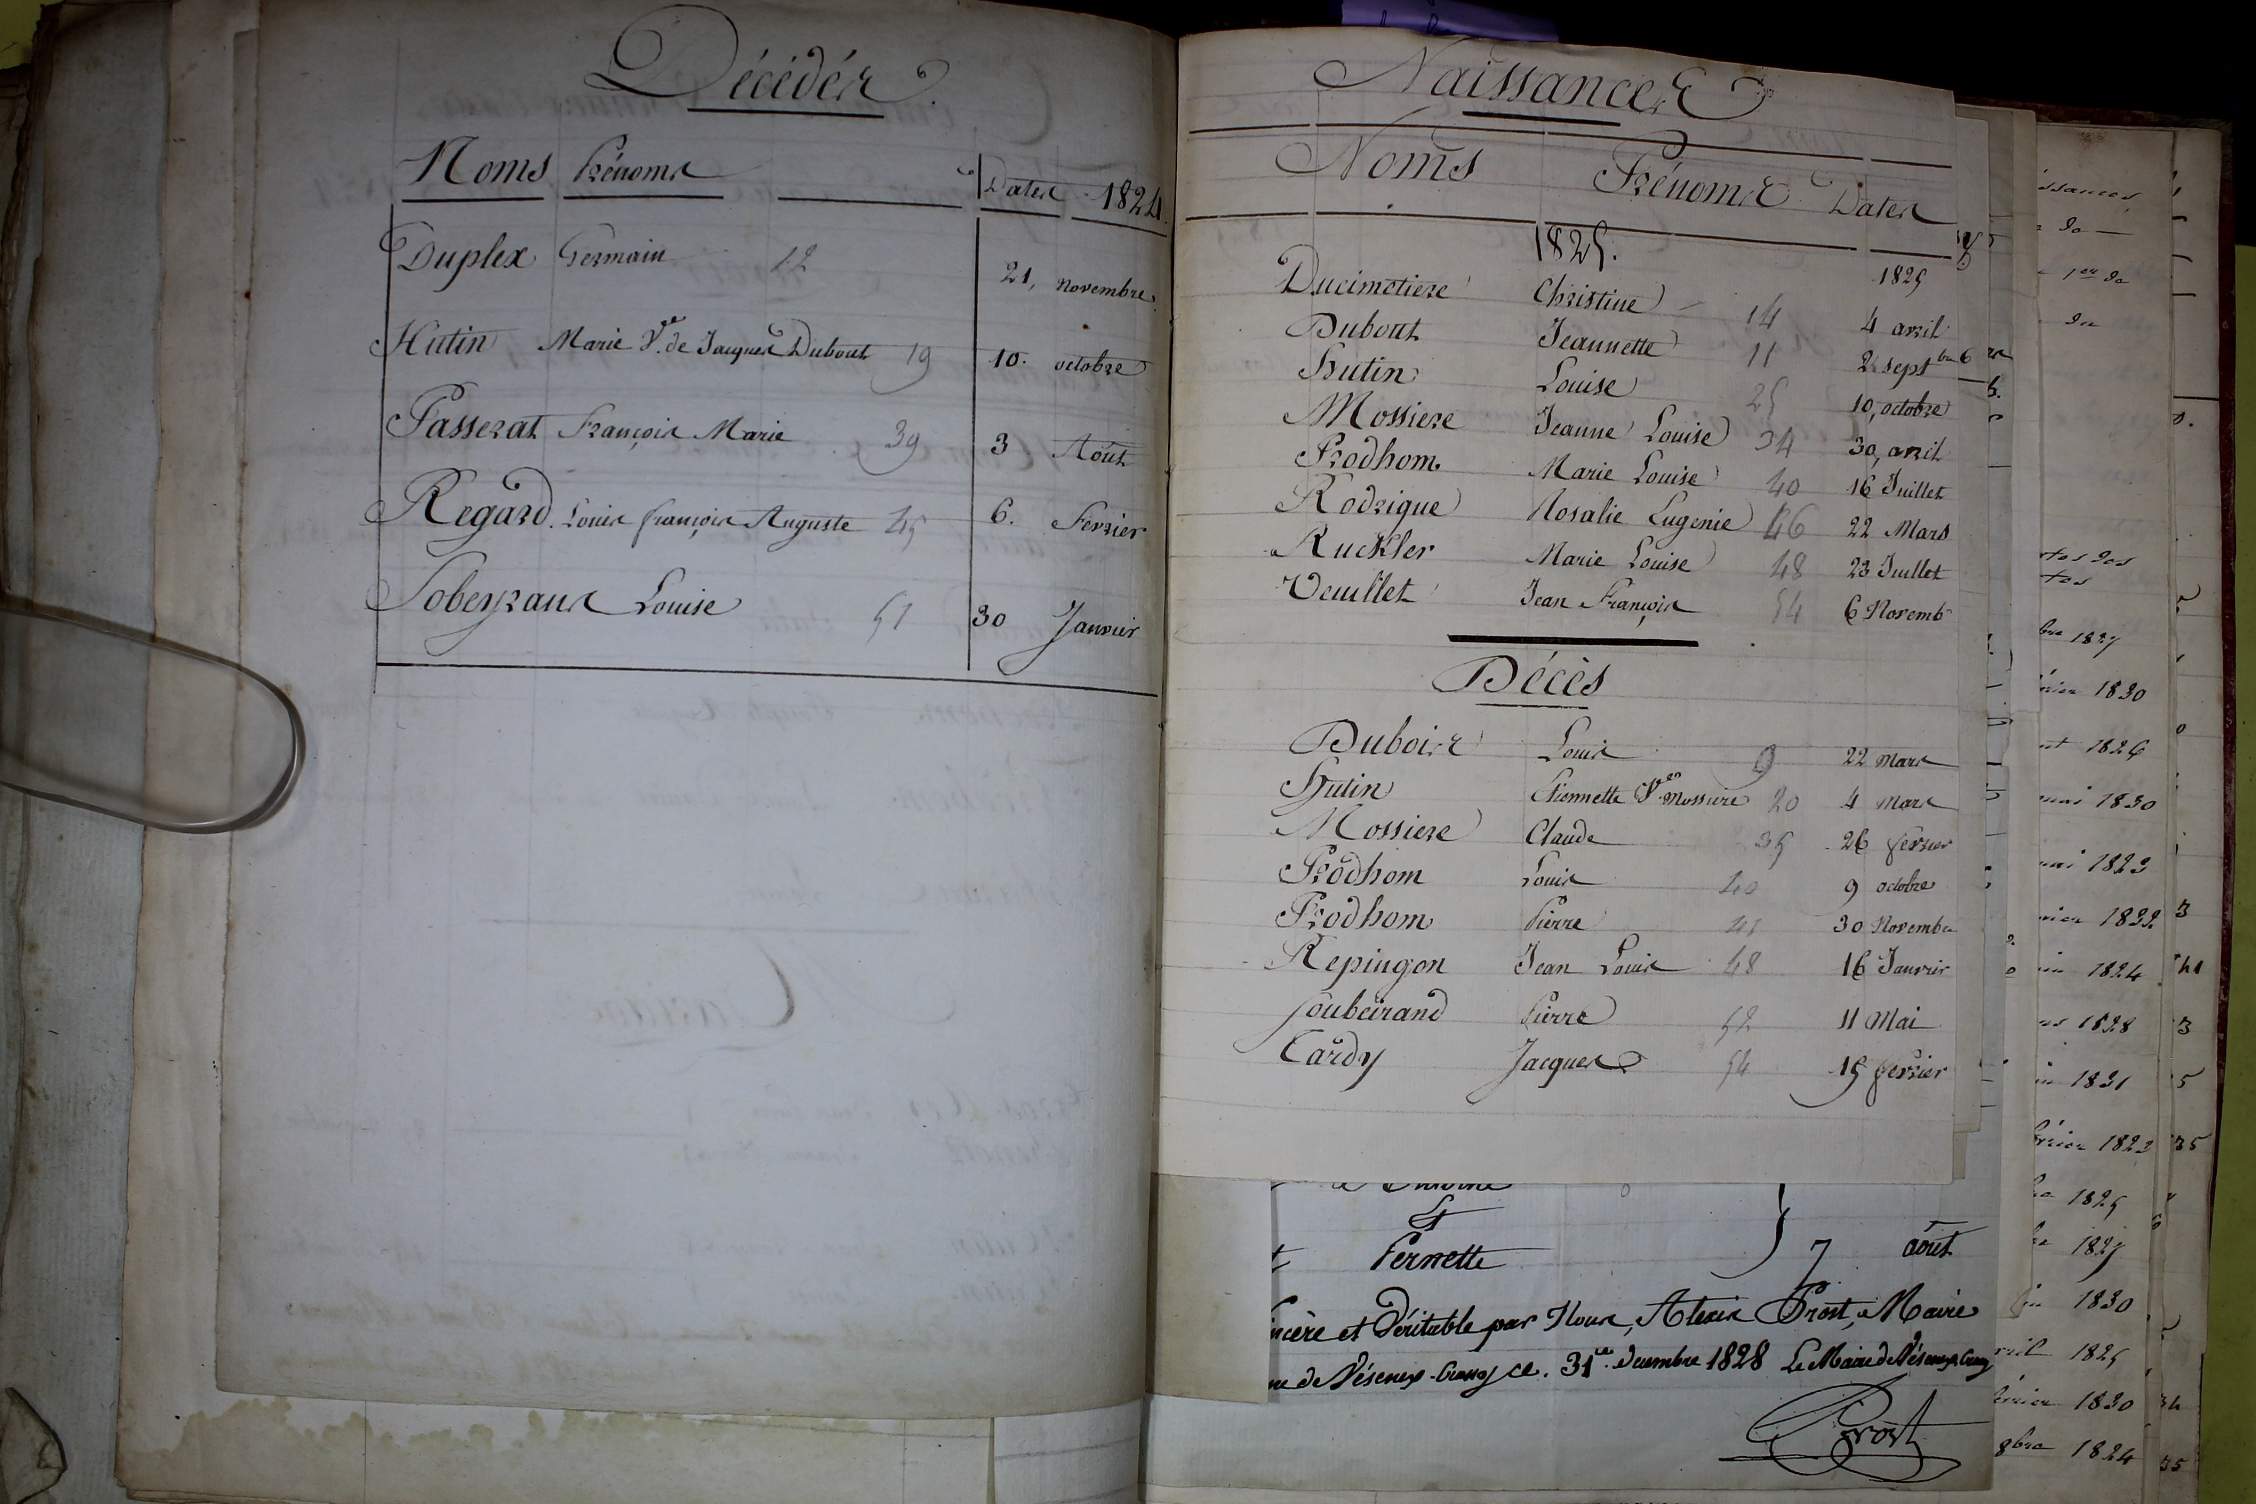 Décédés
Noms Prénoms Dates 1824.
Duplex Germain 12 21, novembre
Hutin Marie Ve. de Jacques Dubout 19 10. octobre
Passerat François Marie 39 3 Août
Regard. Louis françois Auguste 45 6. Fevrier
Sobeyrans Louise 51 30 Janvier
Naissances
Noms Prénoms Dates
1825.
1825
Ducimetiere Christine 14 4 avril
Dubout Jeannette 11 2 septbre
Hutin Louise 25 10, octobre
Mossiere Jeanne Louise 34 30, avril
Prodhom Marie Louise 40 16 Juillet
Rodrigue Rosalie Eugenie 46 22 Mars
Ruckler Marie Louise 48 23 Juillet
Veuillet Jean François 54 6 Novemb
Décès
Dubois Louis 9 22 mars
Hutin Etiennette Ve Mossiere 20 4 mars
Mossiere Claude 35 26 fevrier
Prodhom Louis 40 9 octobre
Prodhom Pierre 41 30 Novembre
Repingon Jean Louis 48 16 Janvier
Soubeirand Pierre 52 11 Mai
Tardy Jacques 54 15 fevrier
et
Pernette 7 août
incère et Véritable par Nous, Alexis Prost, Maire
ne de Vésenex-Crassy ce. 31e. decembre 1828 Le Maire de Vésenex Crassy
Prost
ssances
do
1er do
1827
1830
1826
mai 1830
mai 1823
1832
1824
1828
1831
1823
1825
1827
1830
1825
1830
8bre 1824